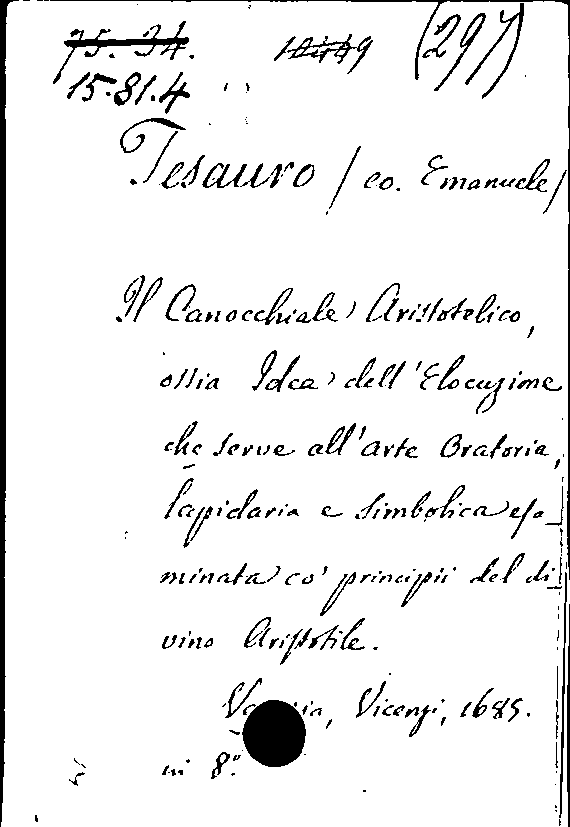 75. 34. 10449 (297)
15.81.4
Tesauro / co. Emanuele /
Il Canocchiale Aristotelico,
ossia Idea dell'Elocuzione
che serve all'arte Oratoria,
lapidaria e simbolica esa_
minata co' principii del di_
vino Aristotile.
Vicenzi, 1685.
in 8º.